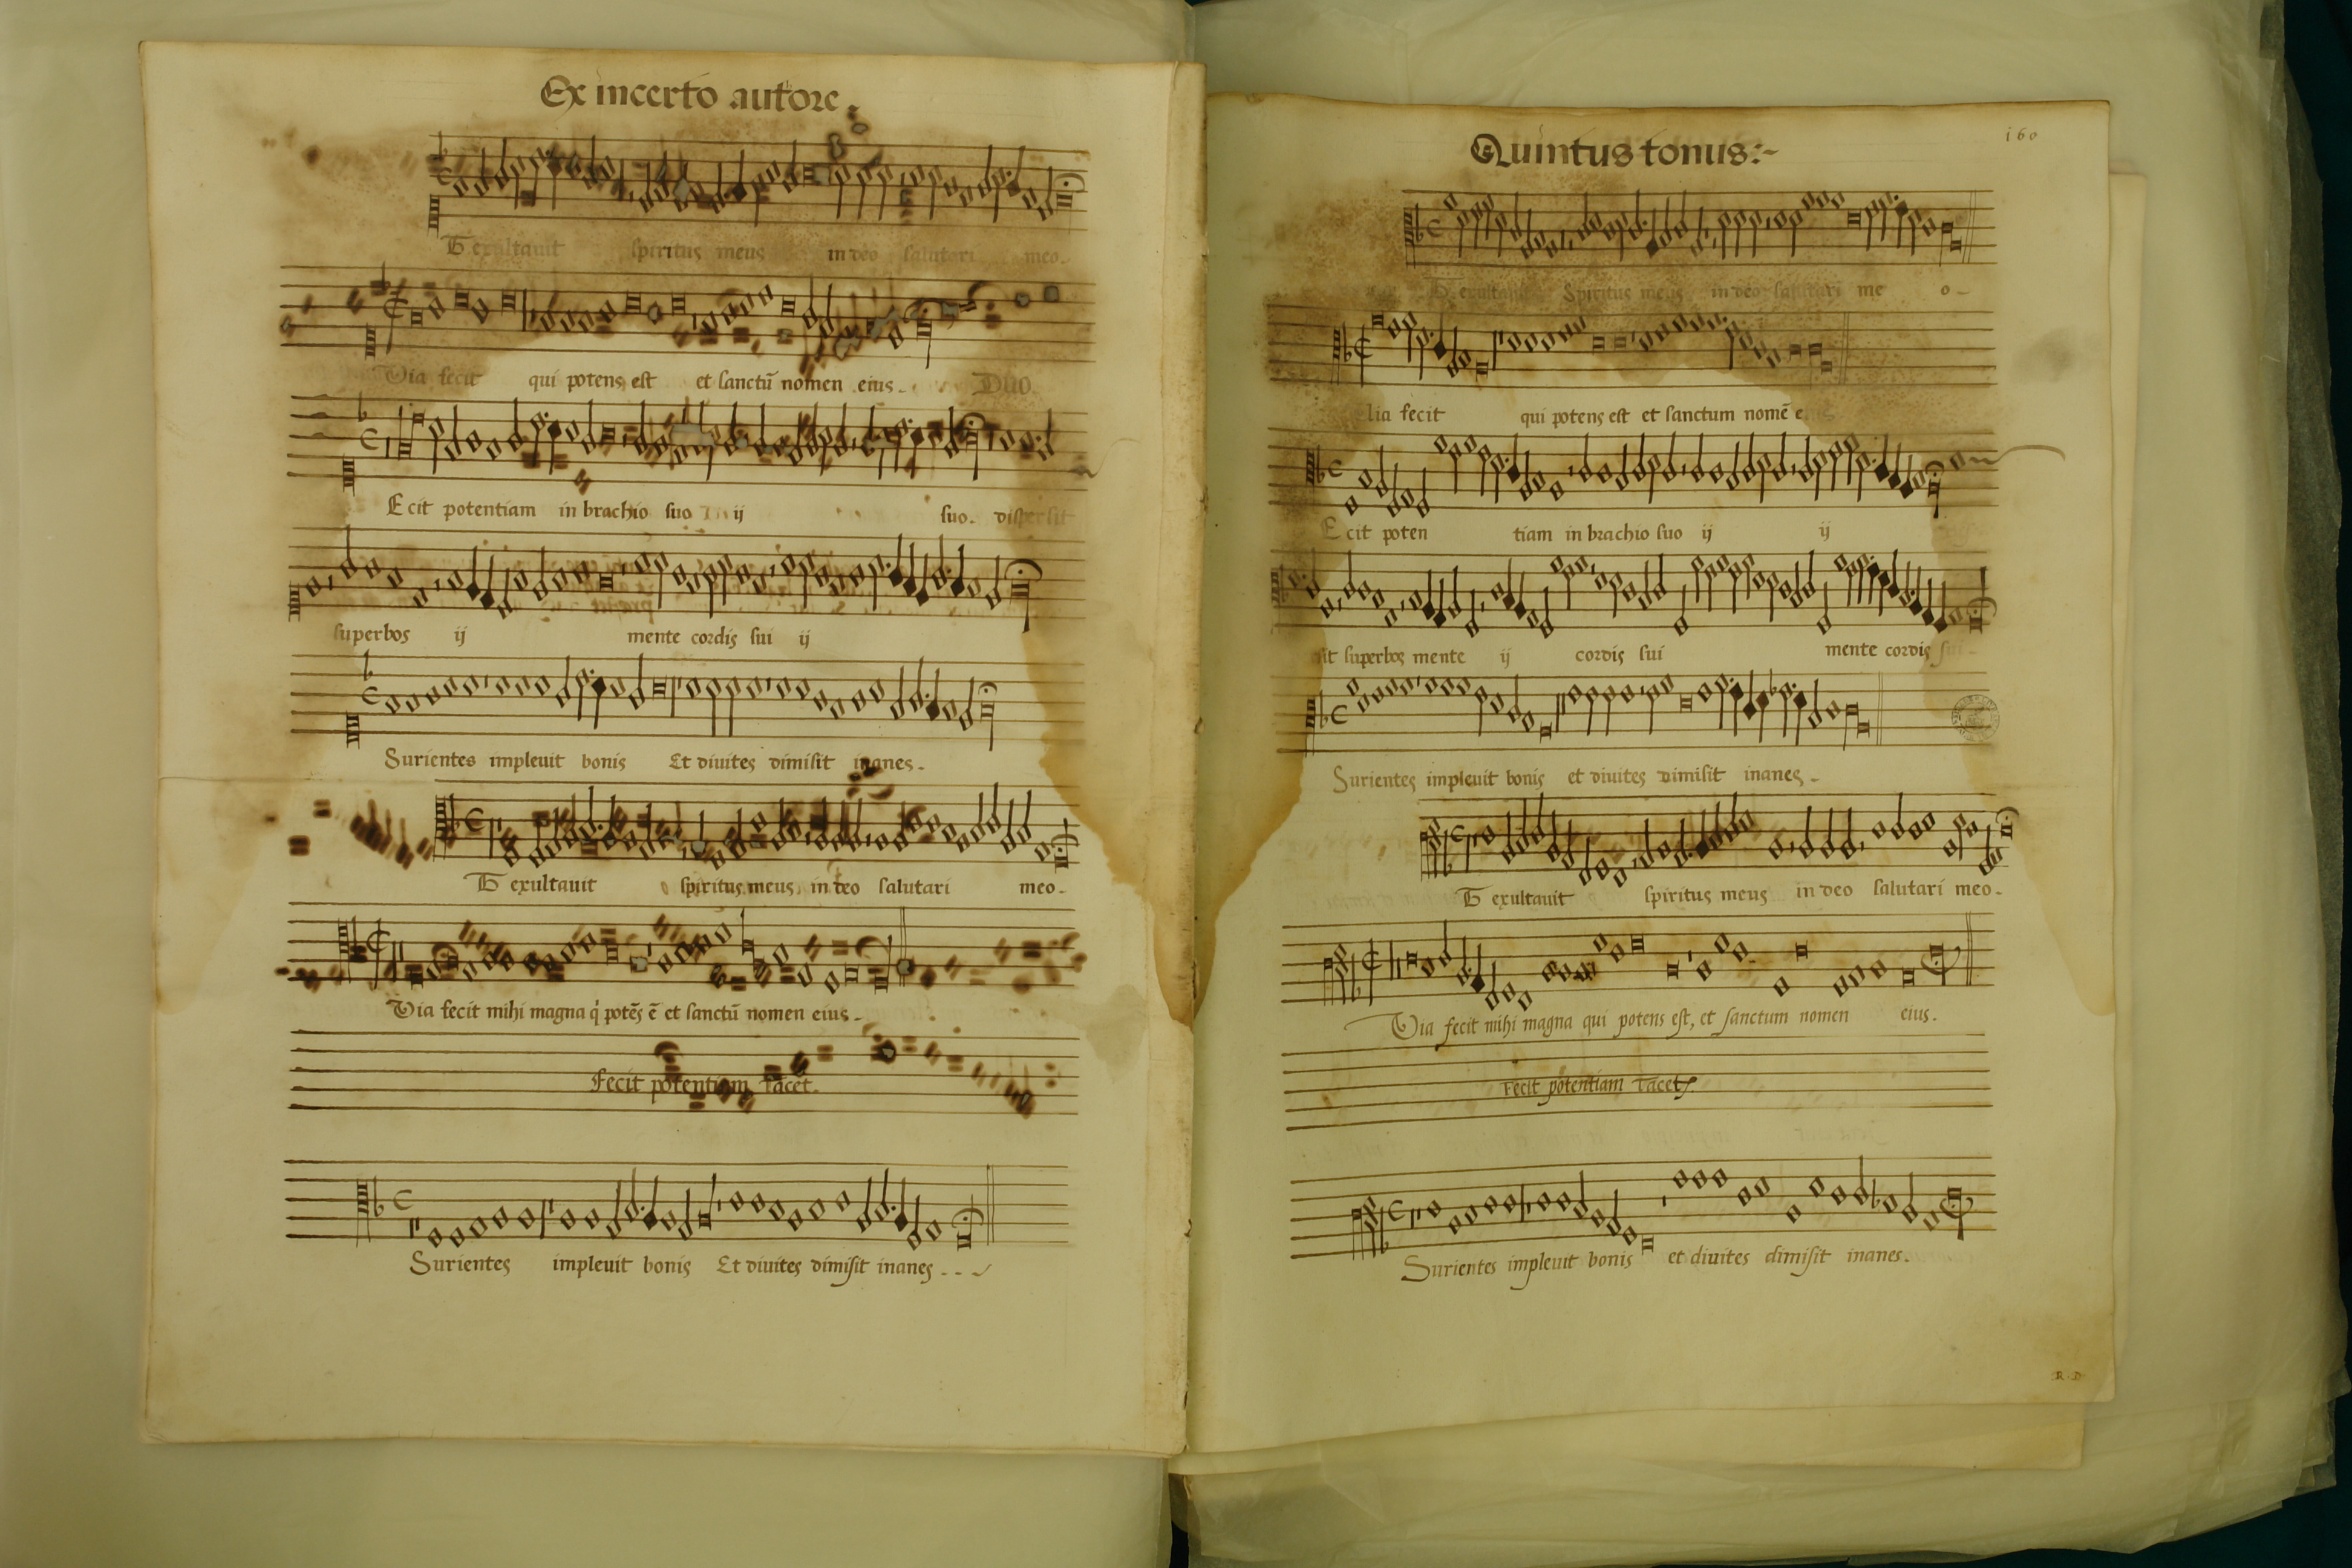 Ex incerto autore.
Et exultauit spiritus meus in deo salutari meo.
Quia fecit qui potens est et sanctū nomen eius. Duo.
Ecit potentiam in brachio suo ij suo. dispersit
superbos ij mente cordis sui ij
Surientes impleuit bonis Et diuites dimisit inanes.
Et exultauit spiritus meus in deo salutari meo.
Quia fecit mihi magna q potēs ē et sanctū nomen eius.
Fecit potentiam tacet.
Surientes impleuit bonis Et diuites dimisit inanes.
160
Quintus tonus:-
Et exultauit Spiritus meus in deo salutari me o.
fecit qui potens est et sanctum nomē
Ecit poten tiam in brachio suo ij ij
superbos mente ij cordis sui mente cordis sui.
Surientes impleuit bonis et diuites dimisit inanes.
Et exultauit spiritus meus in deo salutari meo.
Quia fecit mihi magna qui potens est, et sanctum nomen eius.
Fecit potentiam tacet.
Surientes impleuit bonis et diuites dimisit inanes.
R. D